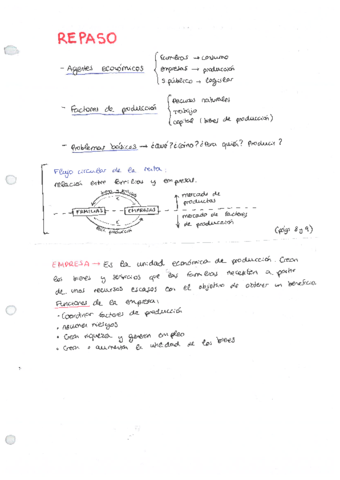 REPASO
- Agentes económicos
familias → consumo
empresas → producción
S. público → legislar
- Factores de producción
Recursos naturales
Trabajo
Capital (bienes de producción)
- Problemas básicos → ¿qué? ¿cómo? ¿Para quién? Producir?
Flujo circular de la renta:
relación entre familias y empresas.
FAMILIAS
EMPRESAS
€
€
mercado de
productos
mercado de factores
de producción
(pág 8 y 9)
EMPRESA → Es la unidad económica de producción. Crean
los bienes y servicios que las familias necesitan a partir
de unos recursos escasos con el objetivo de obtener un beneficio
Funciones de la empresa:
· Coordinar factores de producción
· Asumen riesgos
· Crean riqueza y generan empleo
· Crean o aumentan la utilidad de los bienes